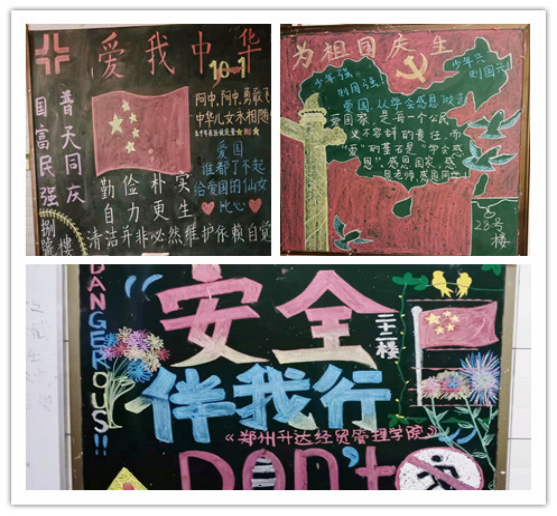 爱我中华
10·1
普天同庆
国富民强
阿中,阿中,勇敢飞
中华儿女永相随
爱国
谁都了不起
给爱国的仙女
比心
勤俭朴实
自力更生
清洁并非必然维护依赖自觉
捌號樓
为祖国庆生
少年强
则国强
少年兴
则国兴
爱国,从学会感恩做起
爱国家,是每一个公民
义不容辞的责任,而
“爱”的基石是“学会感
恩”,感恩国家,感
恩老师,感恩同学!
28号
楼
DANGEROUS!!
安全
伴我行
二十二楼
《郑州升达经贸管理学院》
Don't